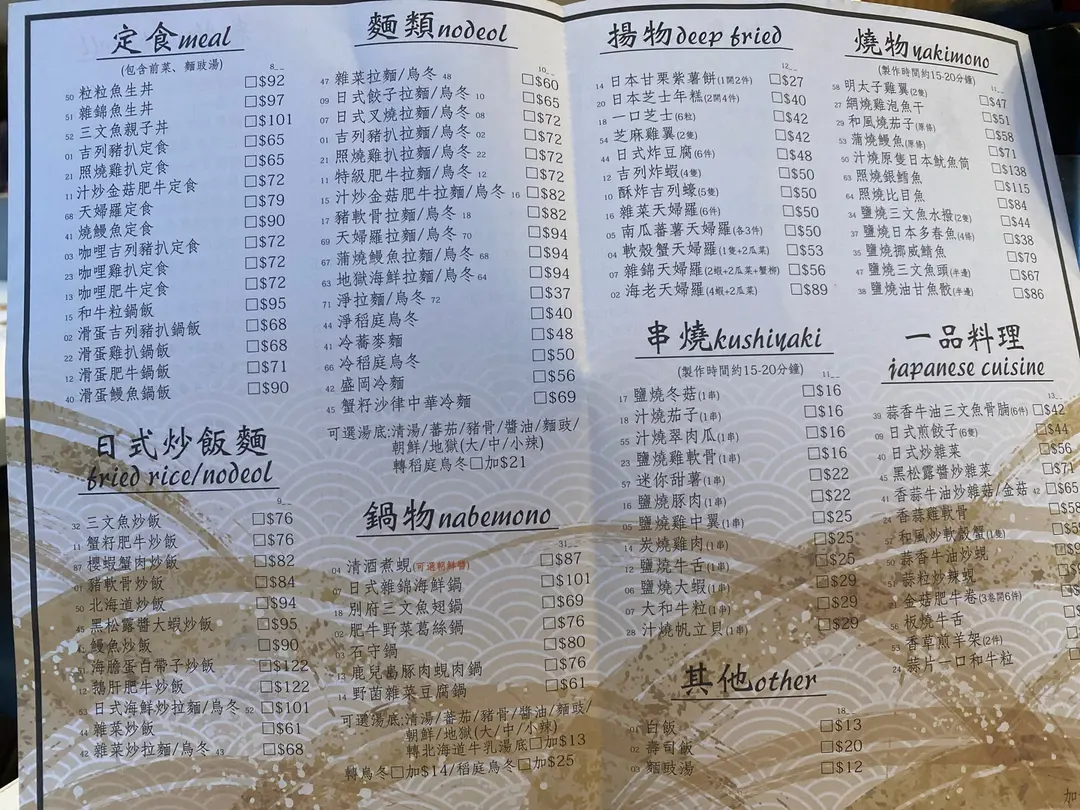 定食meal
(包含前菜、麵豉湯) 8__
50 粒粒魚生丼 □$92
51 雜錦魚生丼 □$97
52 三文魚親子丼 □$101
01 吉列豬扒定食 □$65
21 照燒雞扒定食 □$65
11 汁炒金菇肥牛定食 □$72
68 天婦羅定食 □$79
41 燒鰻魚定食 □$90
03 咖哩吉列豬扒定食 □$72
23 咖哩雞扒定食 □$72
13 咖哩肥牛定食 □$72
15 和牛粒鍋飯 □$95
02 滑蛋吉列豬扒鍋飯 □$68
22 滑蛋雞扒鍋飯 □$68
12 滑蛋肥牛鍋飯 □$71
40 滑蛋鰻魚鍋飯 □$90
日式炒飯麵
fried rice/nodeol
9__
32 三文魚炒飯 □$76
11 蟹籽肥牛炒飯 □$76
87 櫻蝦蟹肉炒飯 □$82
01 豬軟骨炒飯 □$84
50 北海道炒飯 □$94
45 黑松露醬大蝦炒飯 □$95
鰻魚炒飯 □$90
海膽蛋白帶子炒飯 □$122
12 鵝肝肥牛炒飯 □$122
53 日式海鮮炒拉麵/烏冬 52 □$101
44 雜菜炒飯 □$61
42 雜菜炒拉麵/烏冬 43 □$68
麵類nodeol
10__
47 雜菜拉麵/烏冬 48 □$60
09 日式餃子拉麵/烏冬 10 □$65
07 日式叉燒拉麵/烏冬 08 □$72
01 吉列豬扒拉麵/烏冬 02 □$72
21 照燒雞扒拉麵/烏冬 22 □$72
11 特級肥牛拉麵/烏冬 12 □$72
15 汁炒金菇肥牛拉麵/烏冬 16 □$82
17 豬軟骨拉麵/烏冬 18 □$82
69 天婦羅拉麵/烏冬 70 □$94
67 蒲燒鰻魚拉麵/烏冬 68 □$94
63 地獄海鮮拉麵/烏冬 64 □$94
71 淨拉麵/烏冬 72 □$37
44 淨稻庭烏冬 □$40
41 冷蕎麥麵 □$48
66 冷稻庭烏冬 □$50
42 盛岡冷麵 □$56
45 蟹籽沙律中華冷麵 □$69
可選湯底:清湯/蕃茄/豬骨/醬油/麵豉/
朝鮮/地獄(大/中/小辣)
轉稻庭烏冬□加$21
鍋物nabemono
31__
04 清酒煮蜆(可選朝鮮醬) □$87
07 日式雜錦海鮮鍋 □$101
18 別府三文魚翅鍋 □$69
02 肥牛野菜葛絲鍋 □$76
03 石守鍋 □$80
13 鹿兒島豚肉蜆肉鍋 □$76
14 野菌雜菜豆腐鍋 □$61
可選湯底:清湯/蕃茄/豬骨/醬油/麵豉/
朝鮮/地獄(大/中/小辣)
轉北海道牛乳湯底□加$13
轉烏冬□加$14/稻庭烏冬□加$25
揚物deep fried
12__
14 日本甘栗紫薯餅(1開2件) □$27
20 日本芝士年糕(2開4件) □$40
18 一口芝士(6粒) □$42
54 芝麻雞翼(2隻) □$42
44 日式炸豆腐(6件) □$48
12 吉列炸蝦(4隻) □$50
10 酥炸吉列蠔(5隻) □$50
16 雜菜天婦羅(6件) □$50
05 南瓜蕃薯天婦羅(各3件) □$50
04 軟殼蟹天婦羅(1隻+2瓜菜) □$53
07 雜錦天婦羅(2蝦+2瓜菜+蟹柳) □$56
02 海老天婦羅(4蝦+2瓜菜) □$89
串燒kushiyaki
(製作時間約15-20分鐘) 11__
17 鹽燒冬菇(1串) □$16
18 汁燒茄子(1串) □$16
55 汁燒翠肉瓜(1串) □$16
23 鹽燒雞軟骨(1串) □$16
57 迷你甜薯(1串) □$22
16 鹽燒豚肉(1串) □$22
05 鹽燒雞中翼(1串) □$25
14 炭燒雞肉(1串) □$25
12 鹽燒牛舌(1串) □$25
06 鹽燒大蝦(1串) □$29
07 大和牛粒(1串) □$29
28 汁燒帆立貝(1串) □$29
其他other
18__
01 白飯 □$13
02 壽司飯 □$20
03 麵豉湯 □$12
燒物yakimono
(製作時間約15-20分鐘) 11__
58 明太子雞翼(2隻) □$47
27 網燒雞泡魚干 □$51
29 和風燒茄子(原條) □$58
53 蒲燒鰻魚(原條) □$71
50 汁燒原隻日本魷魚筒 □$138
63 照燒銀鱈魚 □$115
64 照燒比目魚 □$84
34 鹽燒三文魚水撥(2隻) □$44
37 鹽燒日本多春魚(4條) □$38
35 鹽燒挪威鯖魚 □$79
47 鹽燒三文魚頭(半邊) □$67
38 鹽燒油甘魚骹(半邊) □$86
一品料理
japanese cuisine
13__
39 蒜香牛油三文魚骨腩(6件) □$42
09 日式煎餃子(6隻) □$44
40 日式炒雜菜 □$56
45 黑松露醬炒雜菜 □$71
41 香蒜牛油炒雜菇/金菇 42 □$65
24 香蒜雞軟骨 □$58
52 和風炒軟殼蟹(1隻)
50 蒜香牛油炒蜆
51 蒜粒炒辣蜆
21 金菇肥牛卷(3卷開6件)
56 板燒牛舌
53 香草煎羊架(2件)
24 蒜片一口和牛粒
加